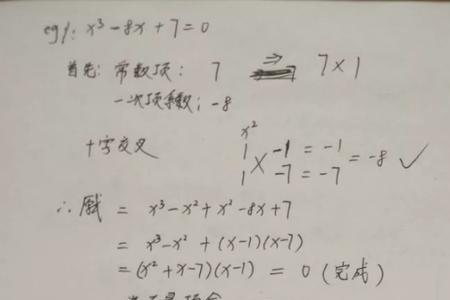 eg1: x³-8x+7=0
首先: 常数项: 7 ⇒ 7×1
一次项系数: -8
x²
十字交叉 1 -1 = -1
× = -8 ✓
1 -7 = -7
∴ 原式 = x³-x²+x²-8x+7
= x³-x²+(x-1)(x-7)
=(x²+x-7)(x-1) = 0 (完成)